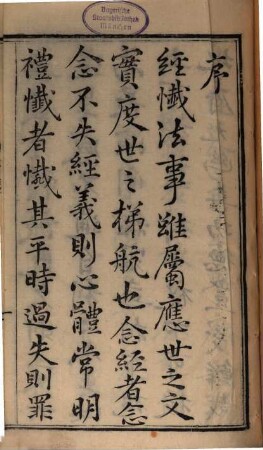 序
經懺法事雖屬應世之文
實度世之梯航也念經者念
念不失經義則心體常明
禮懺者懺其平時過失則罪
Bayerische
Staatsbibliothek
München